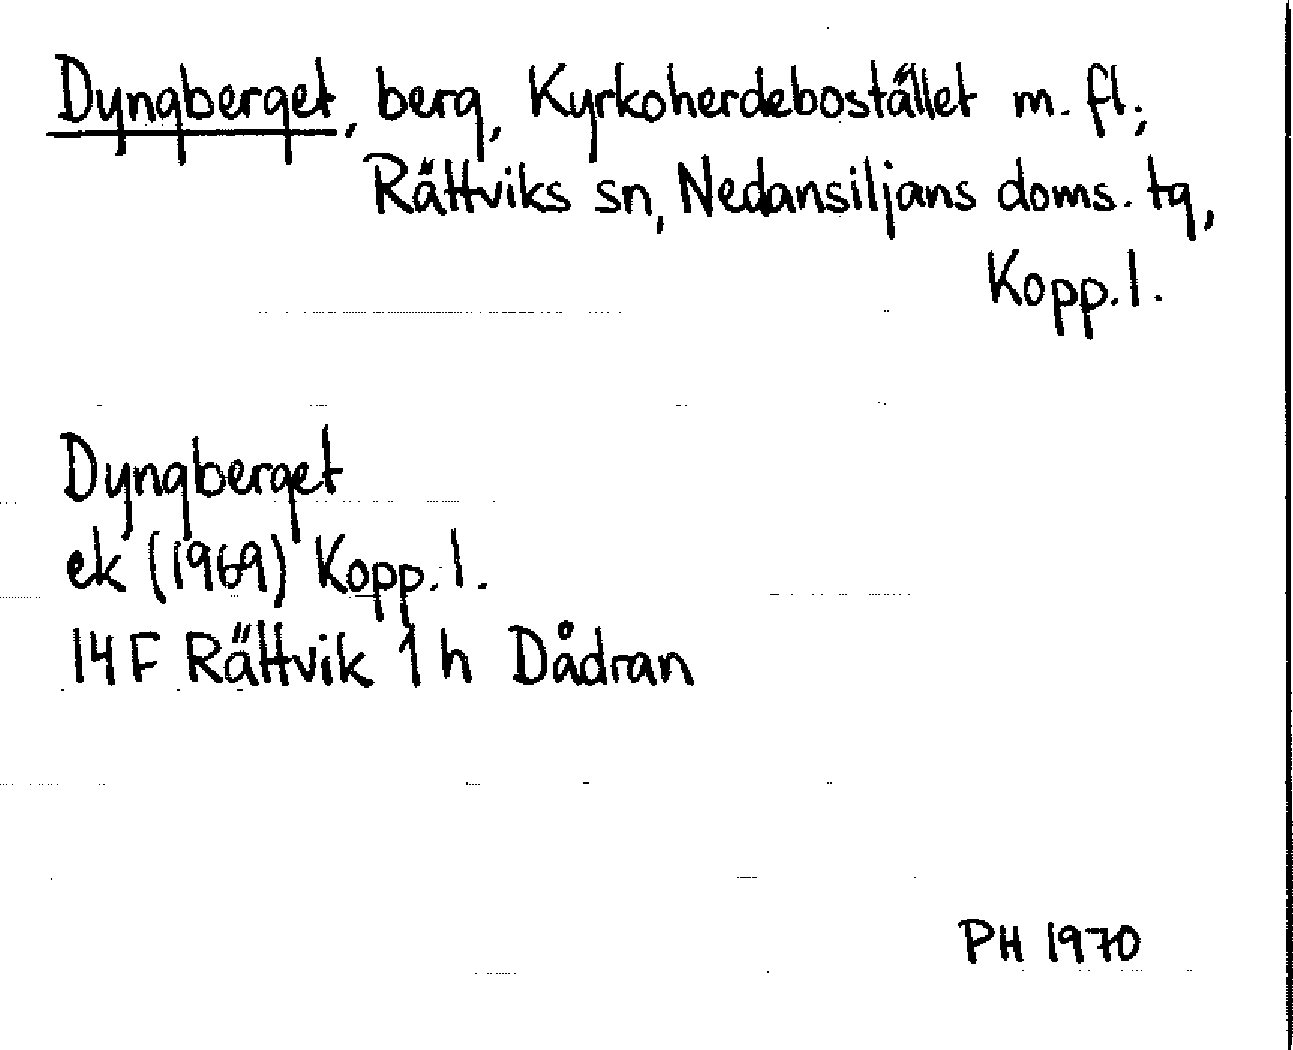 Dyngberget, berg, Kyrkoherdebostället m. fl.;
Rättviks sn, Nedansiljans doms. tg,
Kopp. l.
Dyngberget
ek (1969) Kopp. l.
14F Rättvik 1 h Dådran
PH 1970